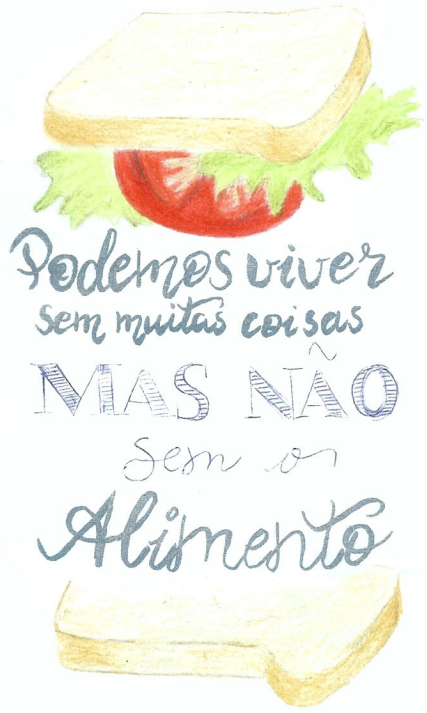 Podemos viver
sem muitas coisas
MAS NÃO
sem o
Alimento